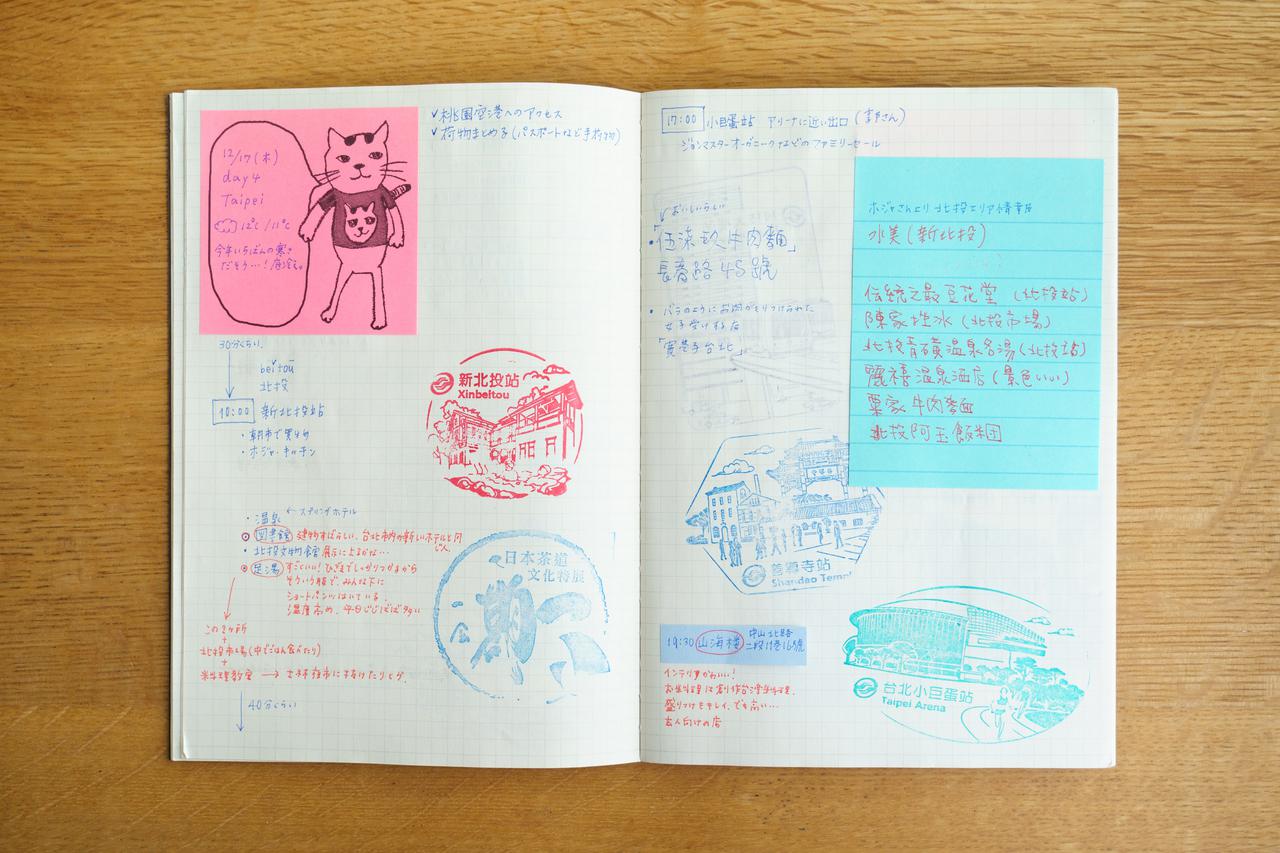 12/17(木)
day 4
Taipei
12℃/11℃
今年いちばんの寒さ
だそう…!底冷え。
✓桃園空港へのアクセス
✓荷物まとめる(パスポートなど手荷物)
30分くらい
beitou
北投
10:00 新北投站
・朝市で買もの
・ホジャ・キッチン
新北投站
Xinbeitou
・温泉 ←スプリングホテル
図書館 建物すばらしい、台北市内の新しいホテルと同じ人
・北投文物館 展示によるかな…
足湯 すごくいい!ひざまでしっかりつかるから
そういう服で、みんな下に
ショートパンツはいている。
温度高め、平日じじばば多い
この3か所
+
北投市場(中でごはん食べたり)
+
料理教室 → 士林夜市に抜けたりとか。
40分くらい
日本茶道
文化特展
17:00 小巨蛋站 アリーナに近い出口
ジョンマスターオーガニックなどのファミリーセール
おいしいらしい
長春路45號
・バラのようにお肉がもりつけられた
女子受けする
ホジャさんより 北投エリア情報
水美(新北投)
伝統之最豆花堂(北投站)
陳家挫冰(北投市場)
北投青磺温泉名湯(北投站)
麗禧温泉酒店(景色いい)
家牛肉麵
北投阿玉飯糰
善導寺站
Shandao Temple
19:30 山海樓 中山北路
二段11巷16號
インテリアかわいい!
お料理は創作台湾料理、
盛りつけもキレイ、でも高い…
玄人向けの店
台北小巨蛋站
Taipei Arena